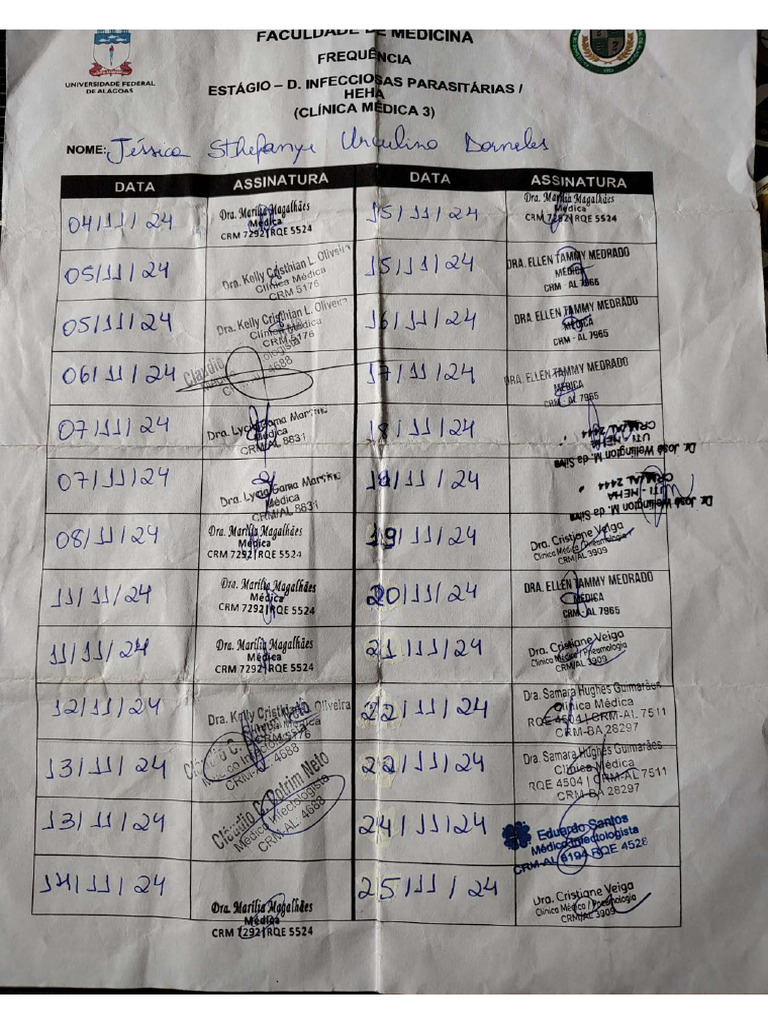 FACULDADE DE MEDICINA
FREQUÊNCIA
UNIVERSIDADE FEDERAL
DE ALAGOAS
ESTÁGIO – D. INFECCIOSAS PARASITÁRIAS /
HEHA
(CLÍNICA MÉDICA 3)
NOME: Jéssica Sthefanye Urculino Dorneles
DATA ASSINATURA DATA ASSINATURA
04/11/24 Dra. Marília Magalhães 15/11/24 Dra. Marília Magalhães
Médica Médica
CRM 7292|RQE 5524 CRM 7292|RQE 5524
05/11/24 Dra. Kelly Cristhian L. Oliveira 15/11/24 DRA. ELLEN TAMMY MEDRADO
Clínica Médica MÉDICA
CRM 5176 CRM - AL 7965
05/11/24 Dra. Kelly Cristhian L. Oliveira 16/11/24 DRA. ELLEN TAMMY MEDRADO
Clínica Médica MÉDICA
CRM 5176 CRM - AL 7965
06/11/24 Claudio 17/11/24 DRA. ELLEN TAMMY MEDRADO
4688 MÉDICA
CRM - AL 7965
07/11/24 Dra. Lycia Gama Martins 18/11/24 Dr. José Wellington M. da Silva
Médica UTI - HEHA
CRM/AL 8831 CRM/AL 2444
07/11/24 Dra. Lycia Gama Martins 18/11/24 Dr. José Wellington M. da Silva
Médica UTI - HEHA
CRM/AL 8831 CRM/AL 2444
08/11/24 Dra. Marília Magalhães 19/11/24 Dra. Cristiane Veiga
Médica Clínica Médica / Pneumologia
CRM 7292|RQE 5524 CRM/AL 3909
11/11/24 Dra. Marília Magalhães 20/11/24 DRA. ELLEN TAMMY MEDRADO
Médica MÉDICA
CRM 7292|RQE 5524 CRM - AL 7965
11/11/24 Dra. Marília Magalhães 21/11/24 Dra. Cristiane Veiga
Médica Clínica Médica / Pneumologia
CRM 7292|RQE 5524 CRM/AL 3909
12/11/24 Dra. Kelly Cristhian L. Oliveira 22/11/24 Dra. Samara Hughes Guimarães
Clínica Médica Clínica Médica
CRM 5176 RQE 4504 | CRM-AL 7511
CRM-BA 28297
13/11/24 Cláudio C. Cotrim Neto 22/11/24 Dra. Samara Hughes Guimarães
Médico Infectologista Clínica Médica
CRM-AL. 4688 RQE 4504 | CRM-AL 7511
CRM-BA 28297
13/11/24 Cláudio C. Cotrim Neto 24/11/24 Eduardo Santos
Médico Infectologista Médico Infectologista
CRM-AL. 4688 CRM-AL 6194 RQE 4526
14/11/24 Dra. Marília Magalhães 25/11/24 Dra. Cristiane Veiga
Médica Clínica Médica / Pneumologia
CRM 7292|RQE 5524 CRM/AL 3909